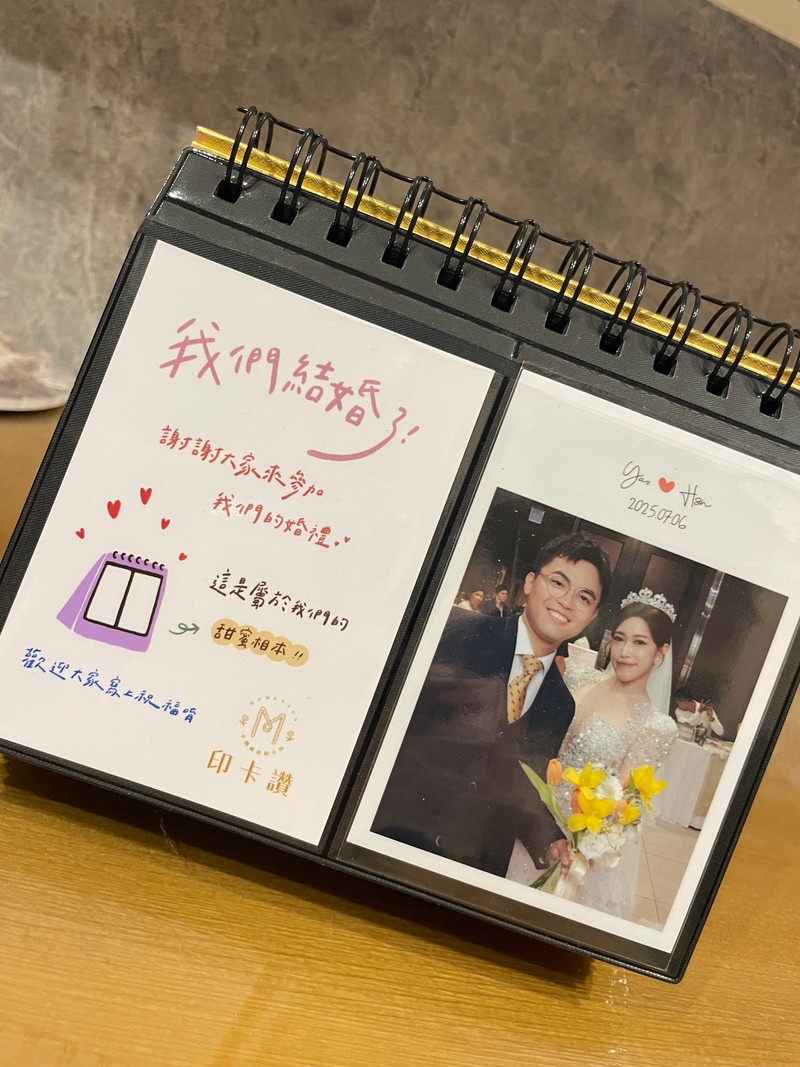 我們結婚了!
謝謝大家來參加
我們的婚禮
這是屬於我們的
甜蜜相本!!
歡迎大家寫上祝福唷
M
印卡讚
Yao Hsin
2025.07.06